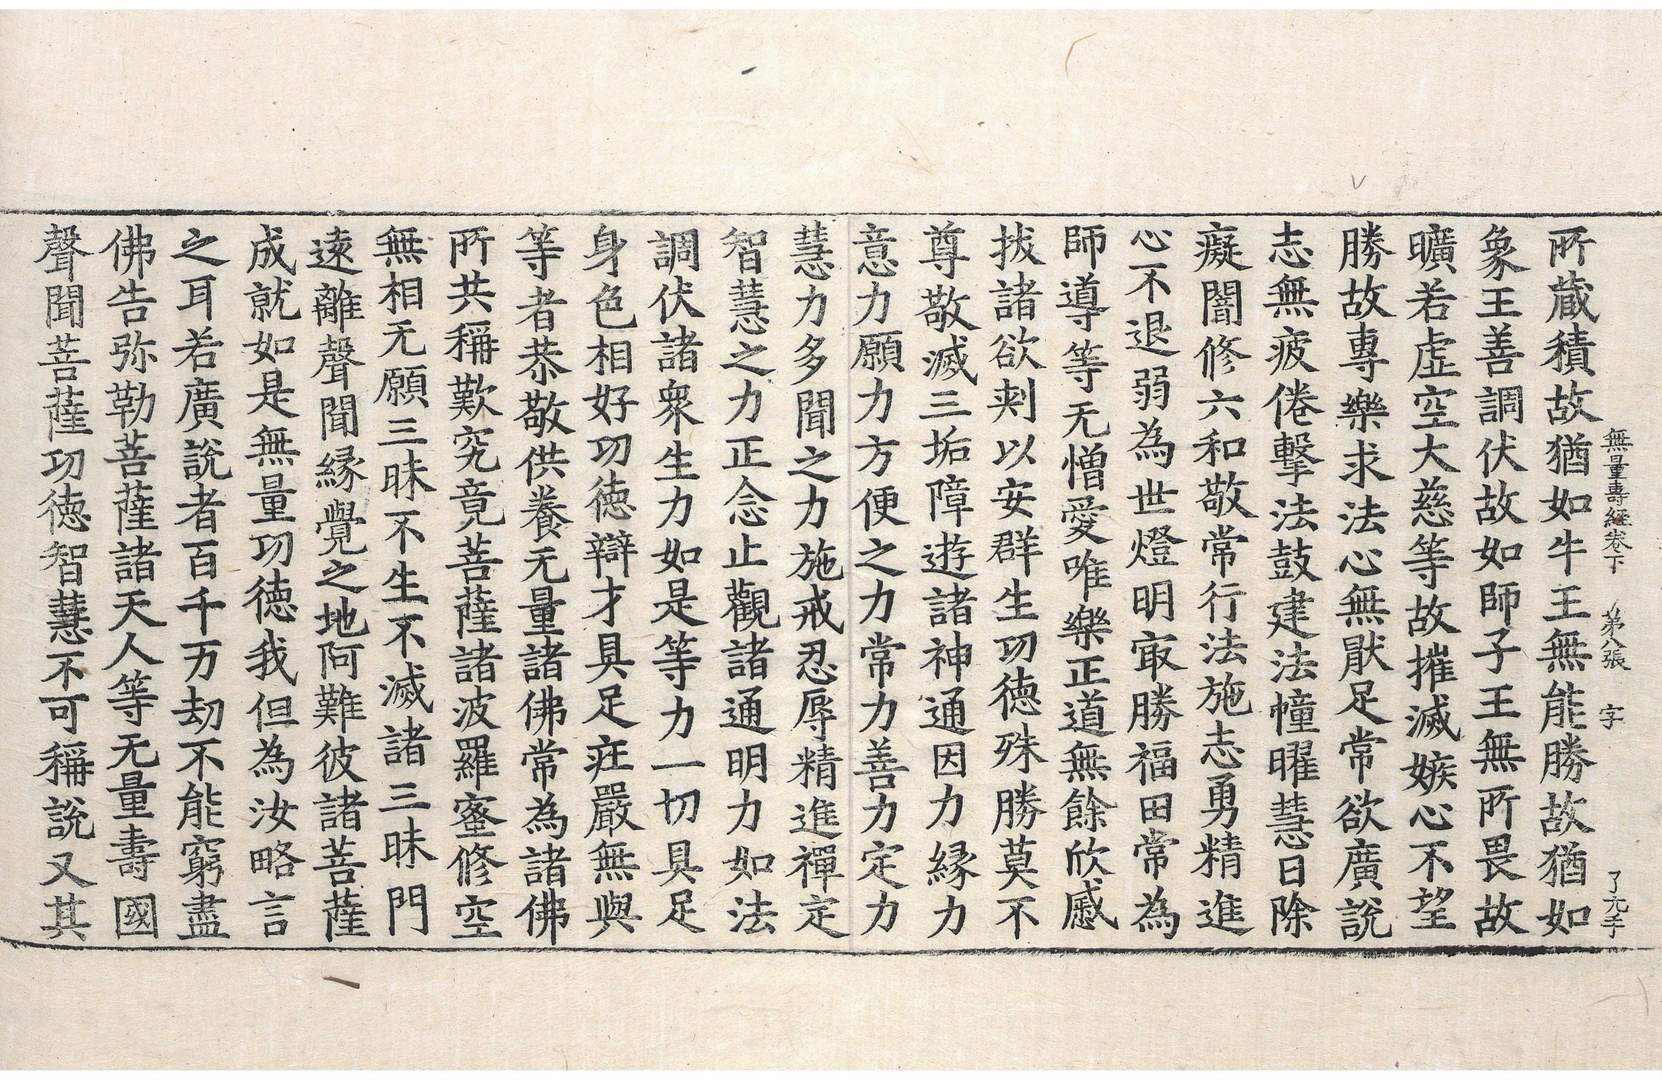 無量壽經卷下 第八張 字 了元手
所蔵積故猶如牛王無能勝故猶如
象王善調伏故如師子王無所畏故
曠若虛空大慈等故摧滅嫉心不望
勝故專樂求法心無猒足常欲廣說
志無疲倦擊法鼓建法幢曜慧日除
癡闇修六和敬常行法施志勇精進
心不退弱為世燈明㝡勝福田常為
師導等无憎愛唯樂正道無餘欣慼
拔諸欲刾以安群生功德殊勝莫不
尊敬滅三垢障遊諸神通因力緣力
意力願力方便之力常力善力定力
慧力多聞之力施戒忍辱精進禪定
智慧之力正念止觀諸通明力如法
調伏諸衆生力如是等力一切具足
身色相好功德辯才具足莊嚴無與
等者恭敬供養无量諸佛常為諸佛
所共稱歎究竟菩薩諸波羅蜜修空
無相无願三昧不生不滅諸三昧門
遠離聲聞緣覺之地阿難彼諸菩薩
成就如是無量功德我但為汝略言
之耳若廣說者百千万劫不能窮盡
佛告弥勒菩薩諸天人等无量壽國
聲聞菩薩功德智慧不可稱說又其